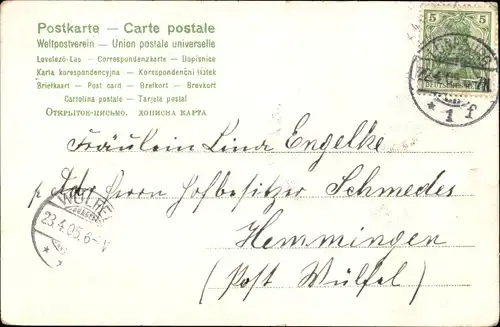 Postkarte — Carte postale
Weltpostverein — Union postale universelle
Levelező-Lap — Correspondenzkarte — Dopisnice
Karta korespondencyjna — Korespondenční lístek
Briefkaart — Post card — Brefkort — Brevkort
Cartolina postale — Tarjeta postal
Открытое-письмо. Дописна карта
5 5
DEUTSCHES REICH
22.4.05
* 1 f
Fräulein Lina Engelke
p. Adr Herrn Hofbesitzer Schmedes
Hemmingen
(Post Wülfel)
WÜLFEL
23.4.05. 6-